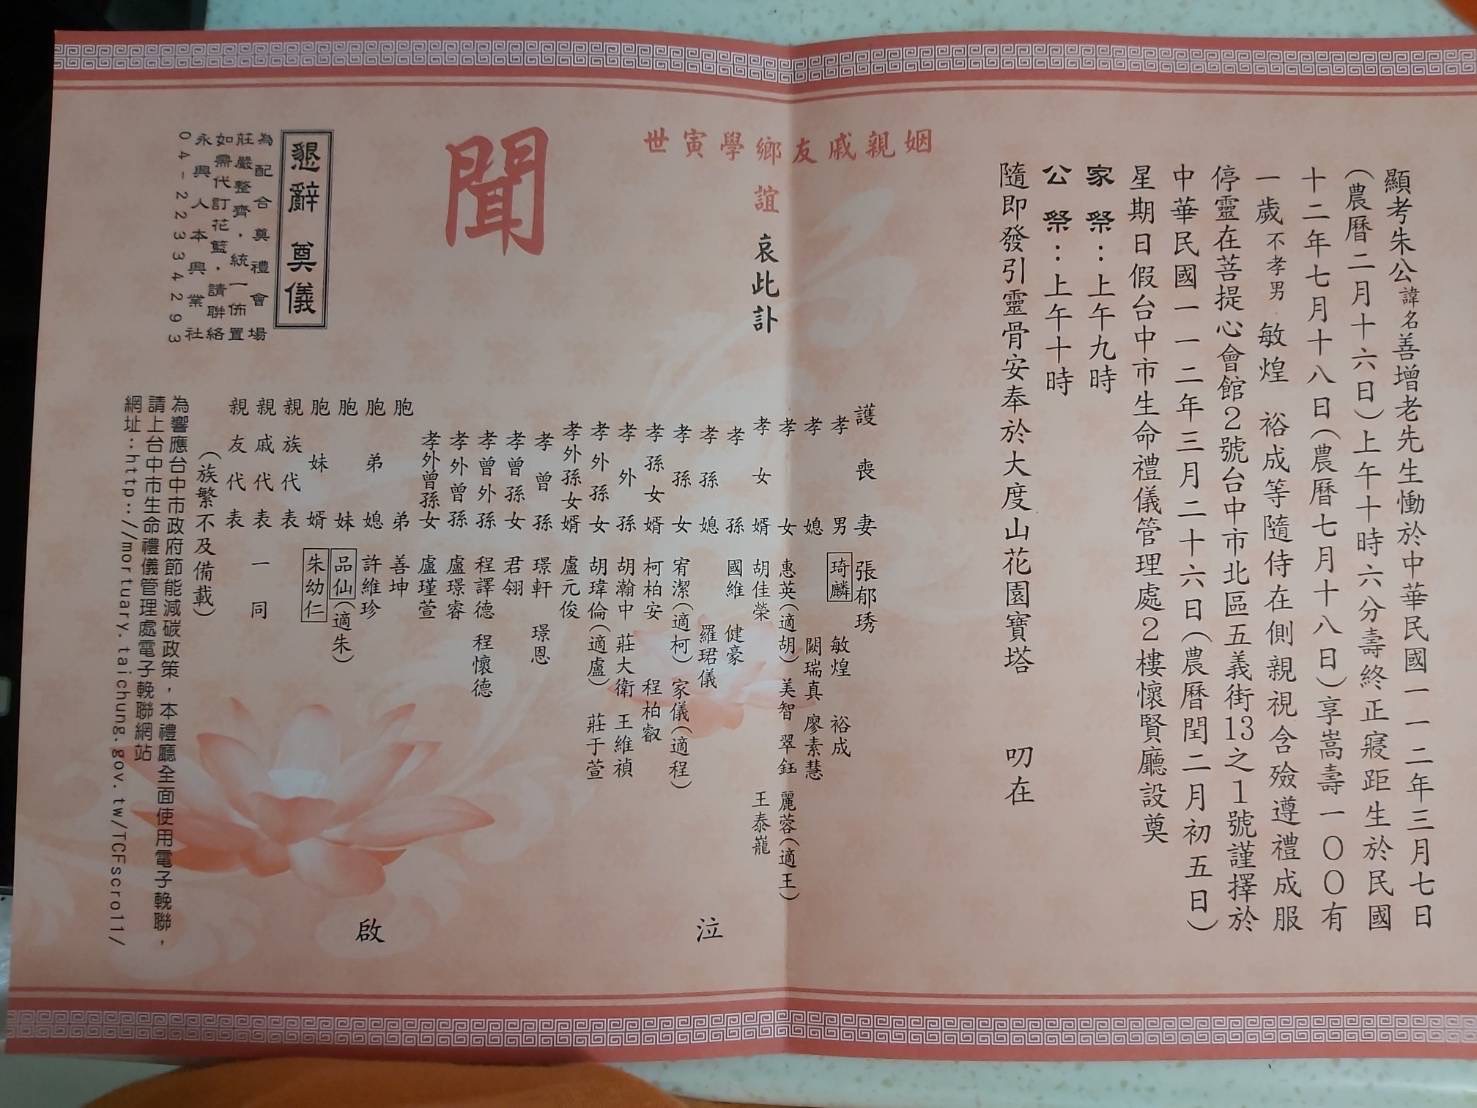 顯考朱公諱名善增老先生慟於中華民國一一二年三月七日
(農曆二月十六日)上午十時六分壽終正寢距生於民國
十二年七月十八日(農曆七月十八日)享嵩壽一〇〇有
一歲不孝男敏煌 裕成等隨侍在側親視含殮遵禮成服
停靈在菩提心會館2號台中市北區五義街13之1號謹擇於
中華民國一一二年三月二十六日(農曆閏二月初五日)
星期日假台中市生命禮儀管理處2樓懷賢廳設奠
家祭：上午九時
公祭：上午十時
隨即發引靈骨安奉於大度山花園寶塔 叨在
姻親戚友鄉學寅世
誼 哀此訃
聞
護喪妻 張郁琇
孝男 琦麟 敏煌 裕成
孝媳 闕瑞真 廖素慧
孝女 惠英(適胡) 美智 翠鈺 麗蓉(適王)
孝女婿 胡佳榮 王泰巃
孝孫 國維 健豪
孝孫媳 羅珺儀
孝孫女 宥潔(適柯) 家儀(適程)
孝孫女婿 柯柏安 程柏叡
孝外孫 胡瀚中 莊大衛 王維禎
孝外孫女 胡瑋倫(適盧) 莊于萱
孝外孫女婿 盧元俊
孝曾孫 璟軒 璟恩
孝曾孫女 君翎
孝曾外孫 程譯德 程懷德
孝外曾孫 盧璟睿
孝外曾孫女 盧瑾萱
胞弟 善坤
胞弟媳 許維珍
胞妹 品仙(適朱)
胞妹婿 朱幼仁
親族代表
親戚代表 一同
親友代表
(族繁不及備載)
泣
啟
懇辭奠儀
為配合奠禮會場
莊嚴整齊，統一佈置
如需代訂花籃，請聯絡
永興人本興業社
04-22334293
為響應台中市政府節能減碳政策，本禮廳全面使用電子輓聯，
請上台中市生命禮儀管理處電子輓聯網站
網址：http://mortuary.taichung.gov.tw/TCFscroll/